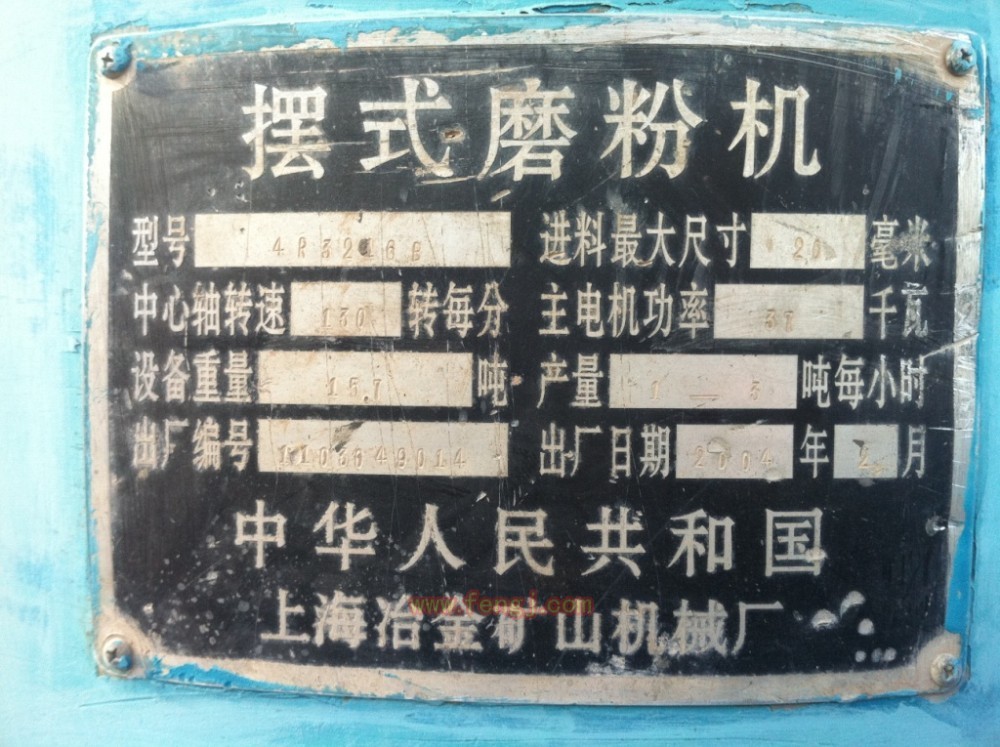 摆式磨粉机
型号 4R3216B 进料最大尺寸 20 毫米
中心轴转速 130 转每分 主电机功率 37 千瓦
设备重量 157 吨 产量 1 — 3 吨每小时
出厂编号 出厂日期 2004 年 2 月
中华人民共和国
www.fengj.com
上海冶金矿山机械厂